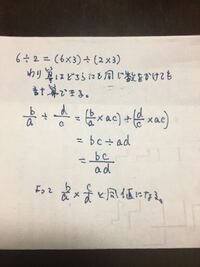 6÷2=(6×3)÷(2×3)
わり算はどちらにも同じ数をかけても
計算できる。
b/a ÷ d/c = (b/a × ac) ÷ (d/c × ac)
= bc÷ad
= bc/ad
よって b/a × c/d と同値になる。